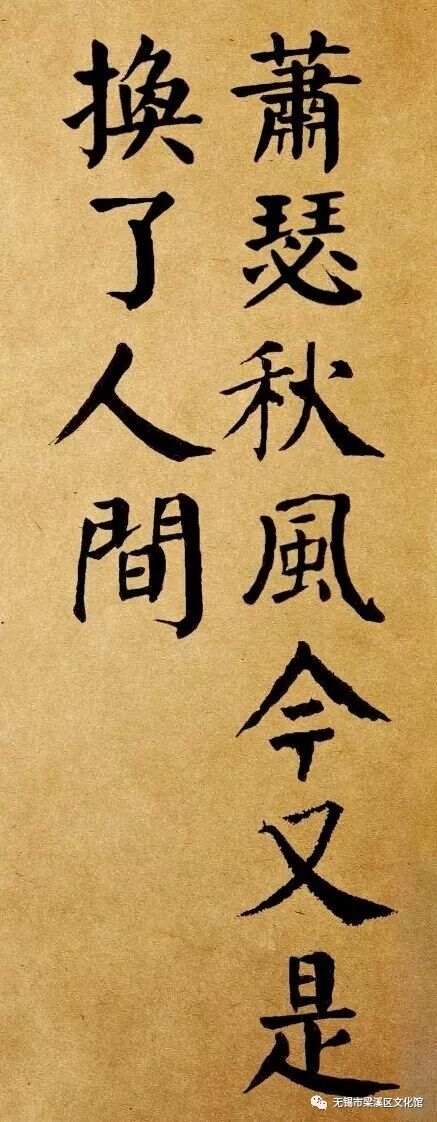 蕭瑟秋風今又是
換了人間
无锡市梁溪区文化馆